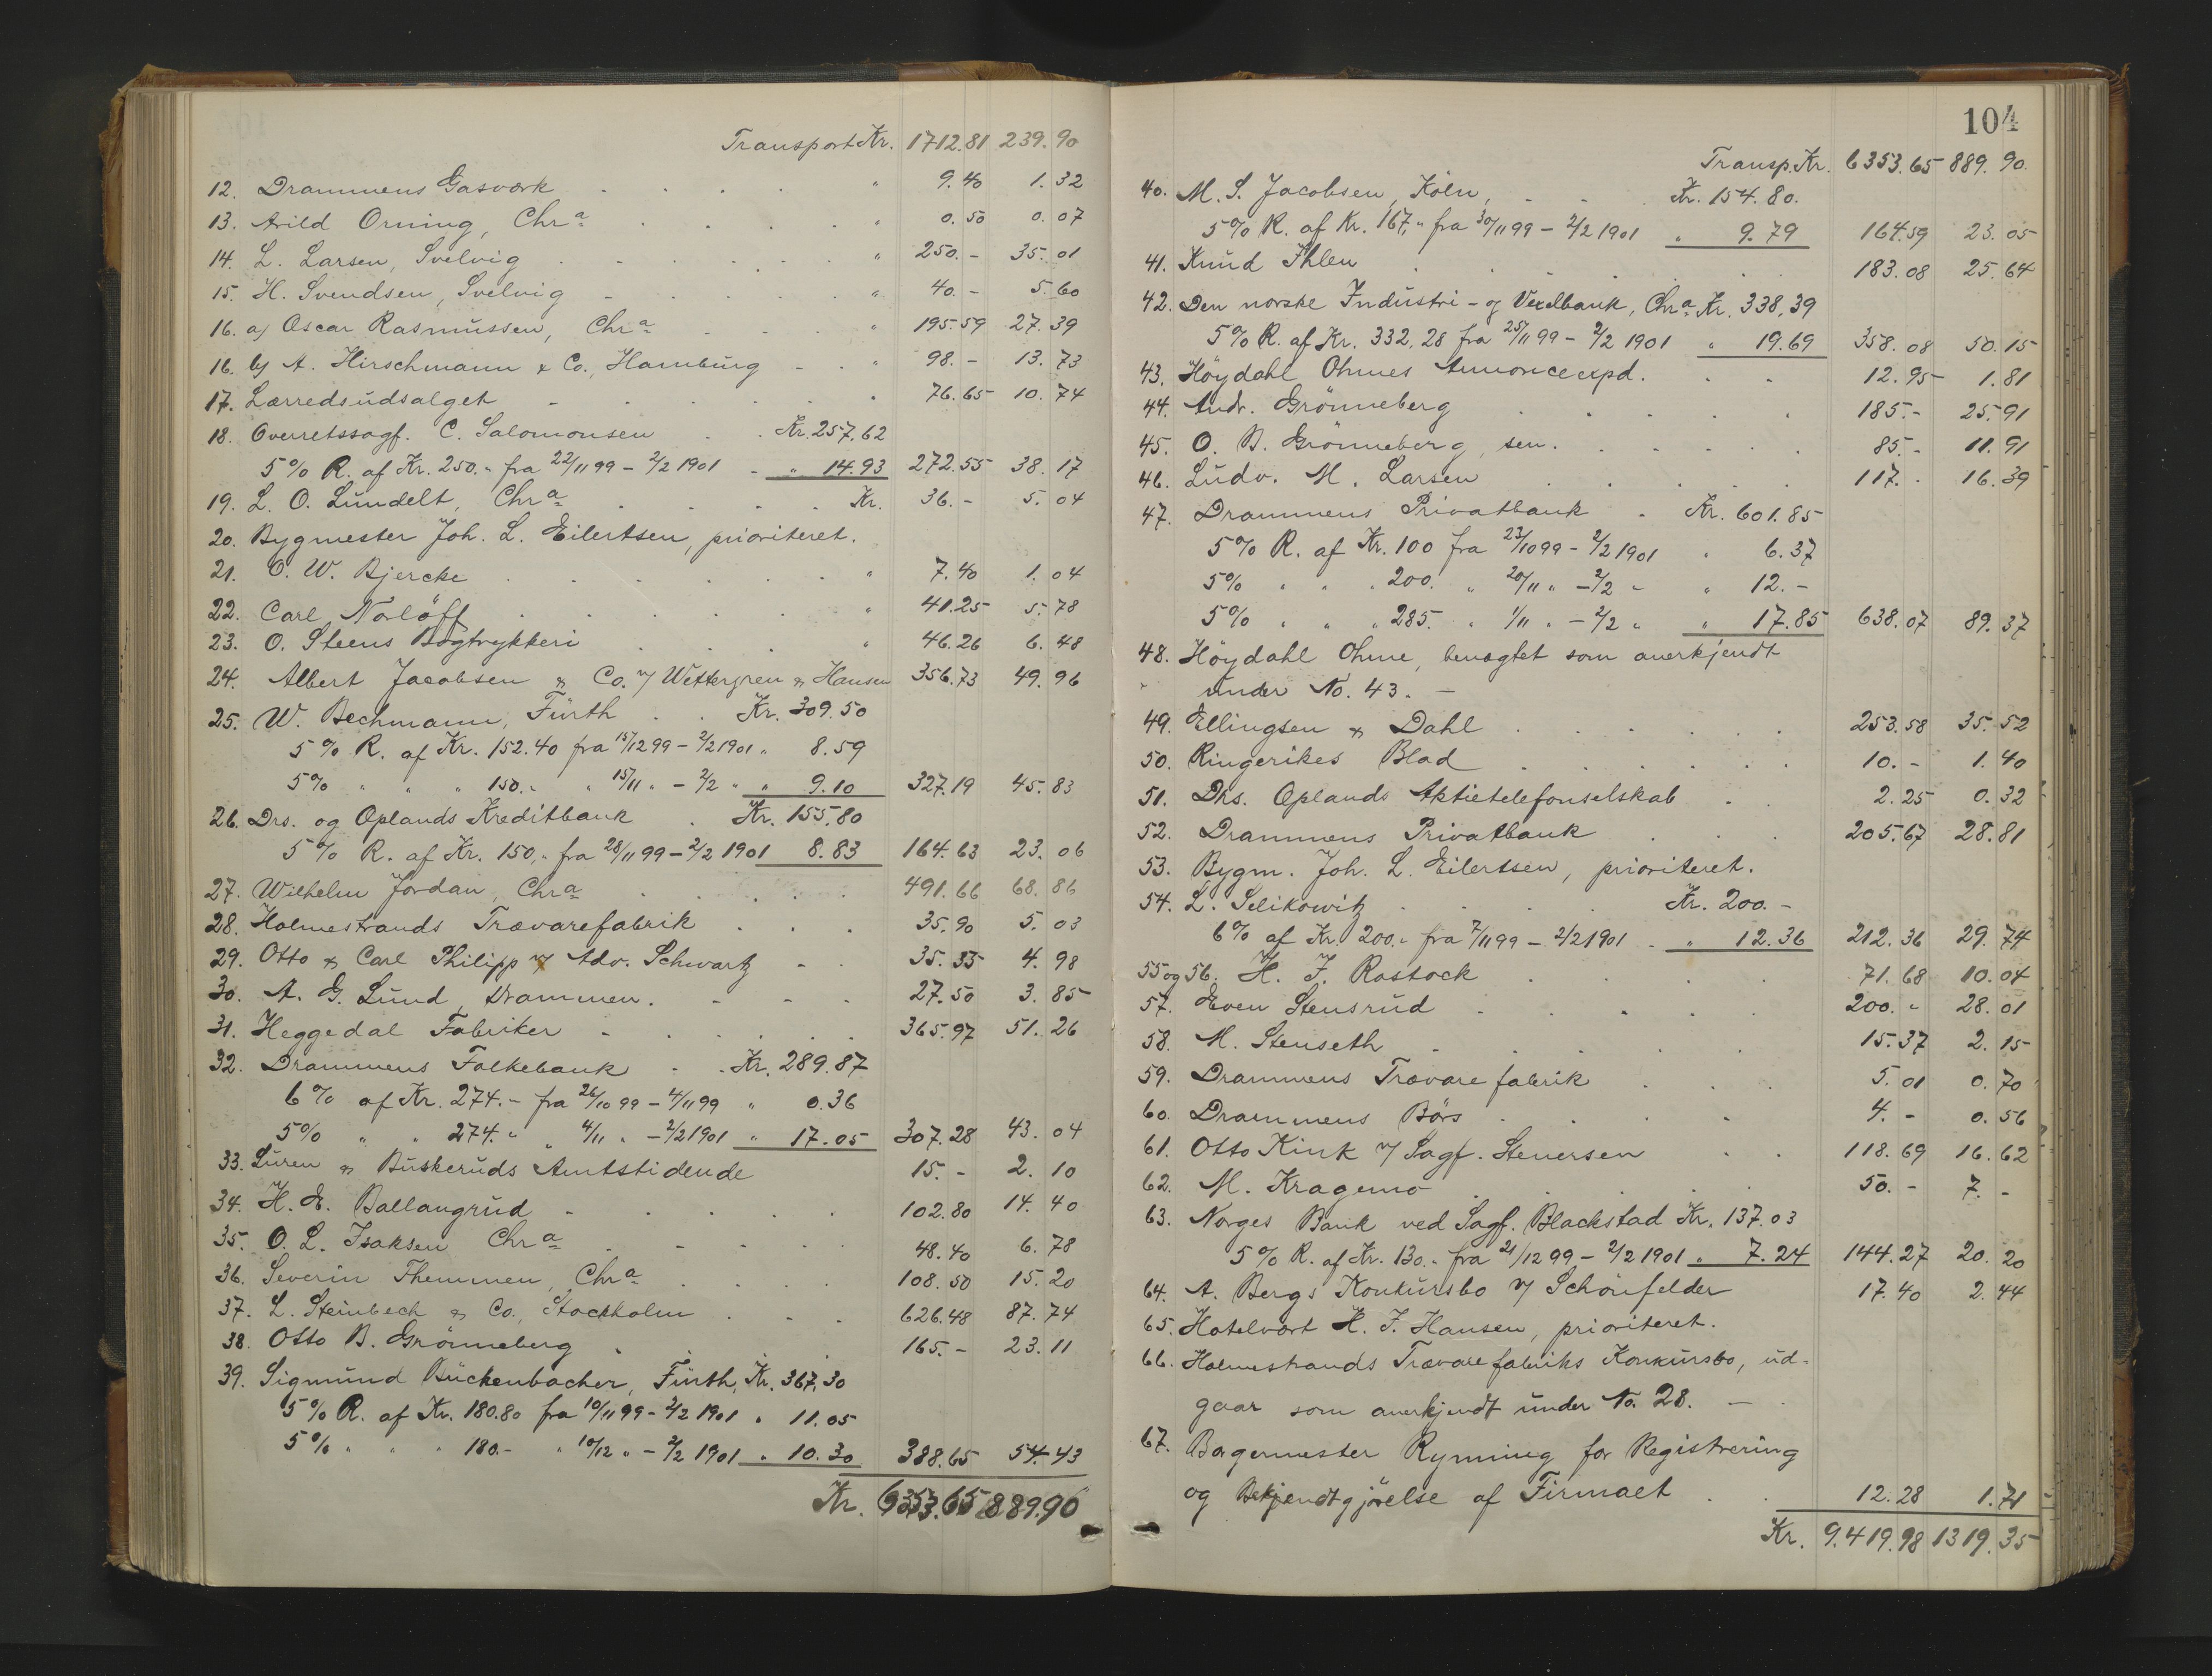 Transport Kr. 1712.81 239.90
12. Drammens Gasværk . . . . " 9.40 1.32
13. Arild Orning, Chra . . . . " 0.50 0.07
14. L. Larsen, Svelvig . . . . " 250.- 35.01
15. H. Svendsen, Svelvig . . . . " 40.- 5.60
16. a) Oscar Rasmussen, Chra . . . " 195.59 27.39
16. b) A. Hirschmann & Co., Hamburg . . " 98.- 13.73
17. Lærredsudsalget . . . . . 76.65 10.74
18. Overretssagf. C. Salomonsen . . Kr. 257.62
5% R. af Kr. 250." fra 22/11 99 - 2/2 1901 - " 14.93 272.55 38.17
19. L. O. Lundelt, Chra . . . . Kr. 36.- 5.04
20. Bygmester Joh. L. Eilertsen, prioriteret.
21. O. W. Bjercke . . . . . " 7.40 1.04
22. Carl Norlöff . . . . . " 41.25 5.78
23. O. Steens Bogtrykkeri . . . " 46.26 6.48
24. Albert Jacobsen & Co. v/ Wettergren & Hansen 356.73 49.96
25. W. Bechmann, Fürth . . Kr. 309.50
5% R. af Kr. 152.40 fra 15/12 99 - 2/2 1901 " 8.59
5% " " " 150." " 15/11 " - 2/2 " " 9.10 327.19 45.83
26. Drs. og Oplands Kreditbank . Kr. 155.80
5% R. af Kr. 150," fra 28/11 99 - 2/2 1901 8.83 164.63 23.06
27. Wilhelm Jordan, Chra . . . . . 491.66 68.86
28. Holmestrands Trævarefabrik . . . 35.90 5.03
29. Otto & Carl Philipp v/ Adv. Schwartz - . 35.55 4.98
30. A. G. Lund, Drammen. - - . 27.50 3.85
31. Heggedal Fabriker - . . . . 365.97 51.26
32. Drammens Folkebank . . Kr. 289.87
6% af Kr. 274.- fra 26/10 99 - 4/11 99 " 0.36
5% " " 274." " 4/11 " - 2/2 1901 " 17.05 307.28 43.04
33. Buskeruds Amtstidende 15.- 2.10
34. H. E. Ballangrud - . . . . 102.80 14.40
35. O. L. Isaksen Chra . . . . 48.40 6.78
36. Severin Themmen, Chra . . . . 108.50 15.20
37. L. Steinbech & Co., Stockholm . . . 626.48 87.74
38. Otto B. Grönneberg . . . 165.- 23.11
39. Sigmund Bückenbacher, Fürth, Kr. 367,30
5% R. af Kr. 180.80 fra 10/11 99 - 2/2 1901 " 11.05
5% " " " 180.- " 10/12 " - 2/2 1901 " 10.30 388.65 54.43
Kr. 6353.65 889.90
104
Transp. Kr. 6353.65 889.90.
40. M. S. Jacobsen, Köln, . . . Kr. 154.80.
5% R. af Kr. 167," fra 30/11 99 - 2/2 1901 " 9.79 164.59 23.05
41. Knud Ihlen . . . . . . 183.08 25.64
42. Den norske Industri- og Vexelbank, Chra Kr. 338,39
5% R. af Kr. 332.28 fra 25/11 99 - 2/2 1901 " 19.69 358.08 50.15
43. Höydahl Ohmes Annonceexpd. . . 12.95 1.81
44. Andr. Grönneberg . . . . . 185.- 25.91
45. O. B. Grönneberg, sen. . . . . . 85.- 11.91
46. Ludv. M. Larsen . . . . . 117." 16.39
47. Drammens Privatbank . Kr. 601.85
5% R. af Kr. 100 fra 23/10 99 - 2/2 1901 " 6.37
5% " " " 200. " 20/11 " - 2/2 " " 12.-
5% " " " 285. " 1/11 " - 2/2 " " 17.85 638.07 89.37
48. Höydahl Ohme, benægtet som anerkjendt
under No. 43. -
49. Ellingsen & Dahl . . . . . . 253.58 35.52
50. Ringerikes Blad . . . . . . 10.- 1.40
51. Drs. Oplands Aktietelefonselskab . . 2.25 0.32
52. Drammens Privatbank . . . 205.67 28.81
53. Bygm. Joh. L. Eilertsen, prioriteret.
54. L. Selikowitz . . . . Kr. 200.-
6% af Kr. 200." fra 7/11 99 - 2/2 1901 - " 12.36 212.36 29.74
55 og 56. H. J. Rostock . . . . 71.68 10.04
57. Even Stensrud . . . . . 200." 28.01
58. M. Stenseth . . . . . 15.37 2.15
59. Drammens Trævarefabrik . . . 5.01 0.70
60. Drammens Börs . . . . 4.- 0.56
61. Otto Kink v/ Sagf. Stenersen . . 118.69 16.62
62. M. Kragemo . . . . . 50.- 7.-
63. Norges Bank ved Sagf. Blackstad Kr. 137.03
5% R. af Kr. 130." fra 21/12 99 - 2/2 1901 " 7.24 144.27 20.20
64. A. Bergs Konkursbo v/ Schönfelder 17.40 2.44
65. Hotelvært H. J. Hansen, prioriteret.
66. Holmestrands Trævarefabriks Konkursbo, ud-
gaar som anerkjendt under No. 28. -
67. Borgermester Rynning for Registrering
og Bekjendtgjörelse af Firmaet . . 12.28 1.71
Kr. 9.419.98 1319.35